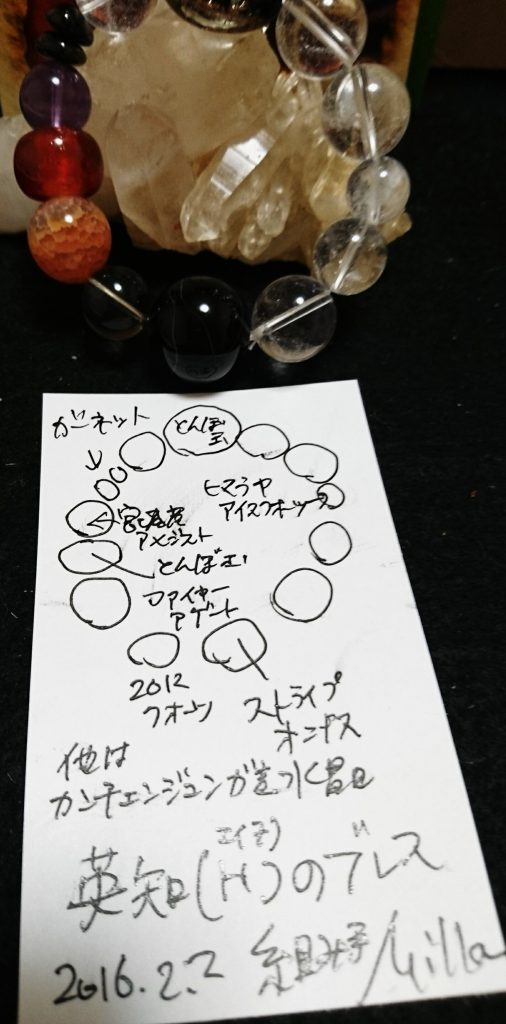 ガーネット
とんぼ
玉
ヒマラヤ
アイスクオーツ
アメジスト
とんぼ玉
ファイヤー
アゲート
2012
クオーツ
ストライプ
オニキス
他は
カンチェンジュンガ産水晶
エイチ
英知(H)のブレス
2016.2.2